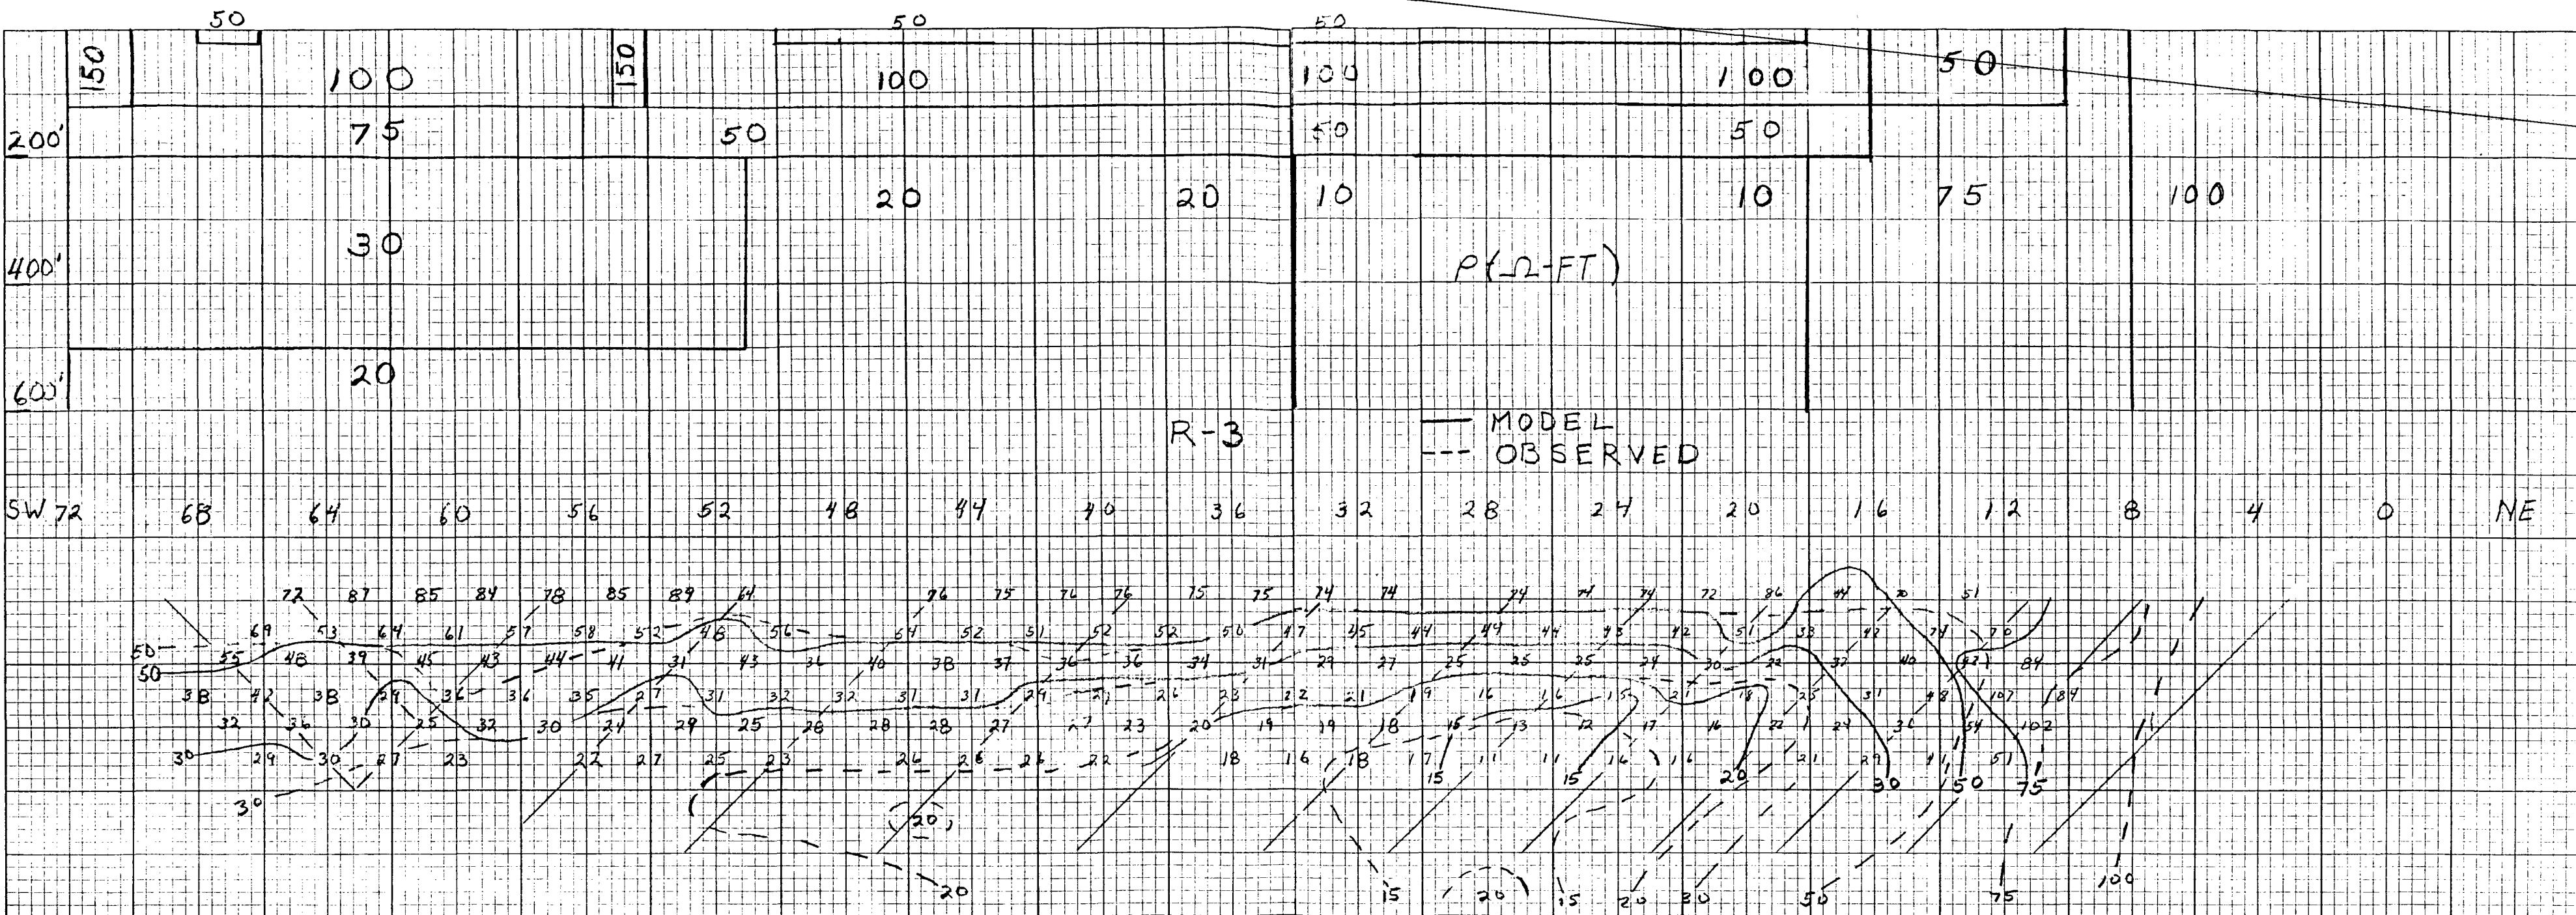 50 50 50
150 100 150 100 100 100 50
200' 75 50 50 50
20 20 10 10 75 100
30
400' ρ(Ω-FT)
20
600'
R-3 — MODEL
--- OBSERVED
SW 72 68 64 60 56 52 48 44 40 36 32 28 24 20 16 12 8 4 0 NE
72 87 85 84 78 85 89 64 76 75 76 76 75 75 74 74 74 74 74 72 86 44 70 51
69 53 64 61 57 58 52 48 56 54 52 51 52 52 50 47 45 44 44 44 43 42 51 33 42 74 70
50 55 48 39 45 43 44 41 31 43 36 40 38 37 36 36 34 31 29 27 25 25 25 24 20 22 32 40 84
50
38 42 38 29 36 36 35 27 31 32 32 31 31 29 26 23 22 21 19 16 16 15 21 18 25 31 48 107 84
32 36 30 25 32 30 24 29 25 28 28 28 27 27 23 20 19 19 18 15 13 12 17 16 22 27 36 54 102
30 29 30 27 23 22 27 25 23 26 26 26 22 18 16 18 17 11 11 16 16 21 29 41 51
15 15 20 30 50 75
30
20
20 15 20 15 20 30 50 75 100